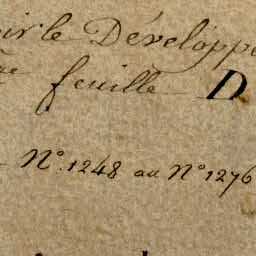 oir le Développe
me feuille D
N° 1248 au N° 1276